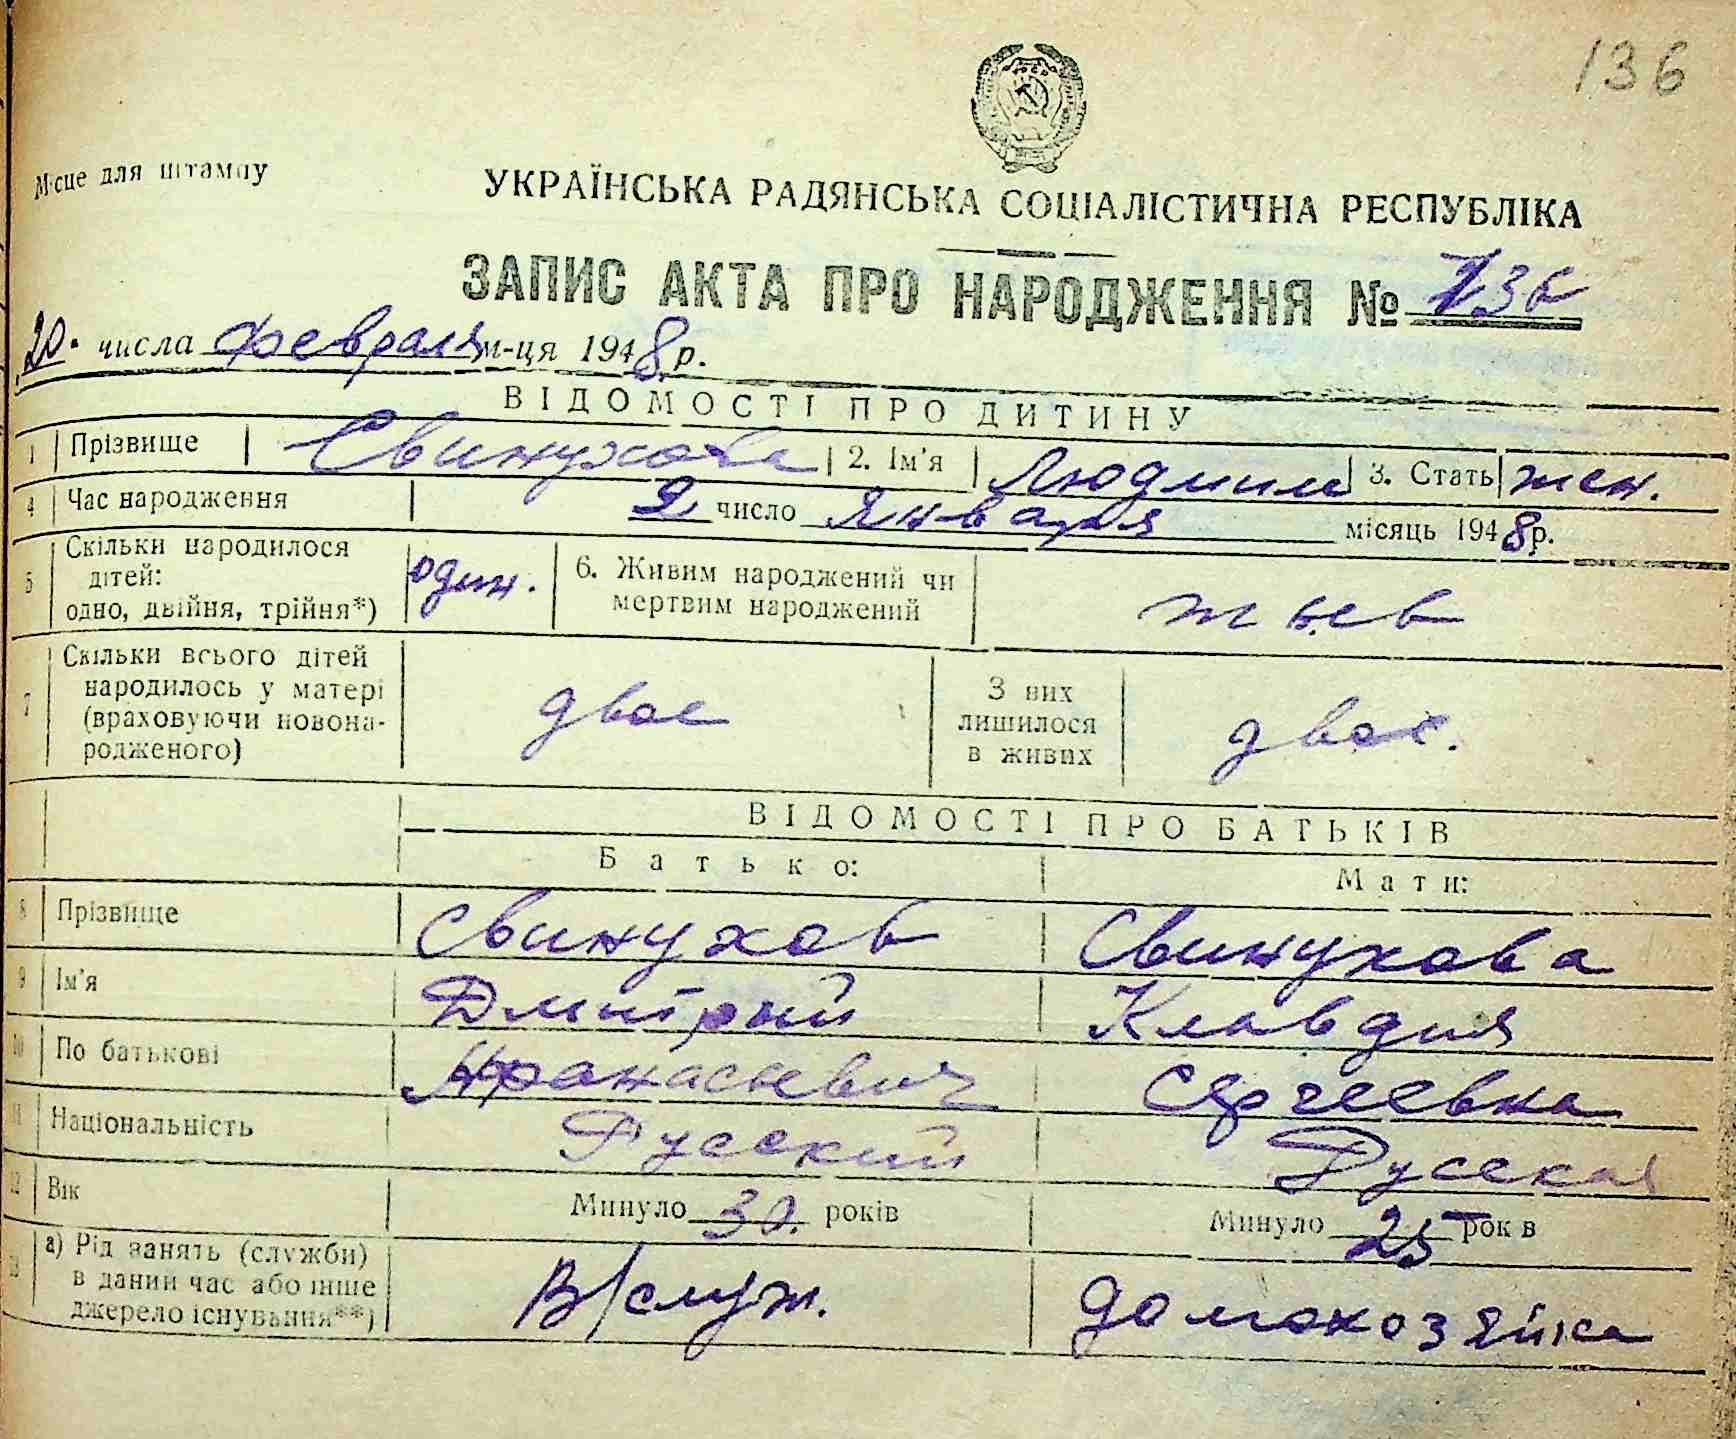 136
Місце для штампу
УКРАЇНСЬКА РАДЯНСЬКА СОЦІАЛІСТИЧНА РЕСПУБЛІКА
ЗАПИС АКТА ПРО НАРОДЖЕННЯ № 136
20. числа февраля м-ця 1948 р.
ВІДОМОСТІ ПРО ДИТИНУ
1 Прізвище Свинухова 2. Ім'я Людмила 3. Стать жен.
4 Час народження 2 число Января місяць 1948 р.
5 Скільки народилося дітей: одно, двійня, трійня*) один. 6. Живим народжений чи мертвим народжений жив
7 Скільки всього дітей народилось у матері (враховуючи новонародженого) двое З них лишилося в живих двое.
ВІДОМОСТІ ПРО БАТЬКІВ
Батько: Мати:
8 Прізвище Свинухов Свинухова
9 Ім'я Дмитрий Клавдия
10 По батькові Афанасьевич Сергеевна
11 Національність Русский Русская
12 Вік Минуло 30. років Минуло 25 років
13 а) Рід занять (служби) в даний час або інше джерело існування**) В/служ. домохозяйка